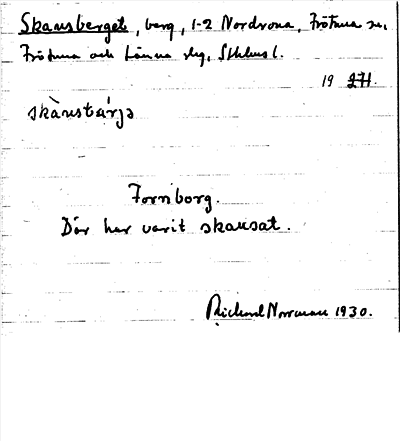 Skansberget, berg, 1-2 Nordrona, Frötuna sn,
Frötuna och Länna slg, Sthlms l.
19 271.
skànsbárjə
Fornborg.
Där har varit skansat.
Richard Norrman 1930.